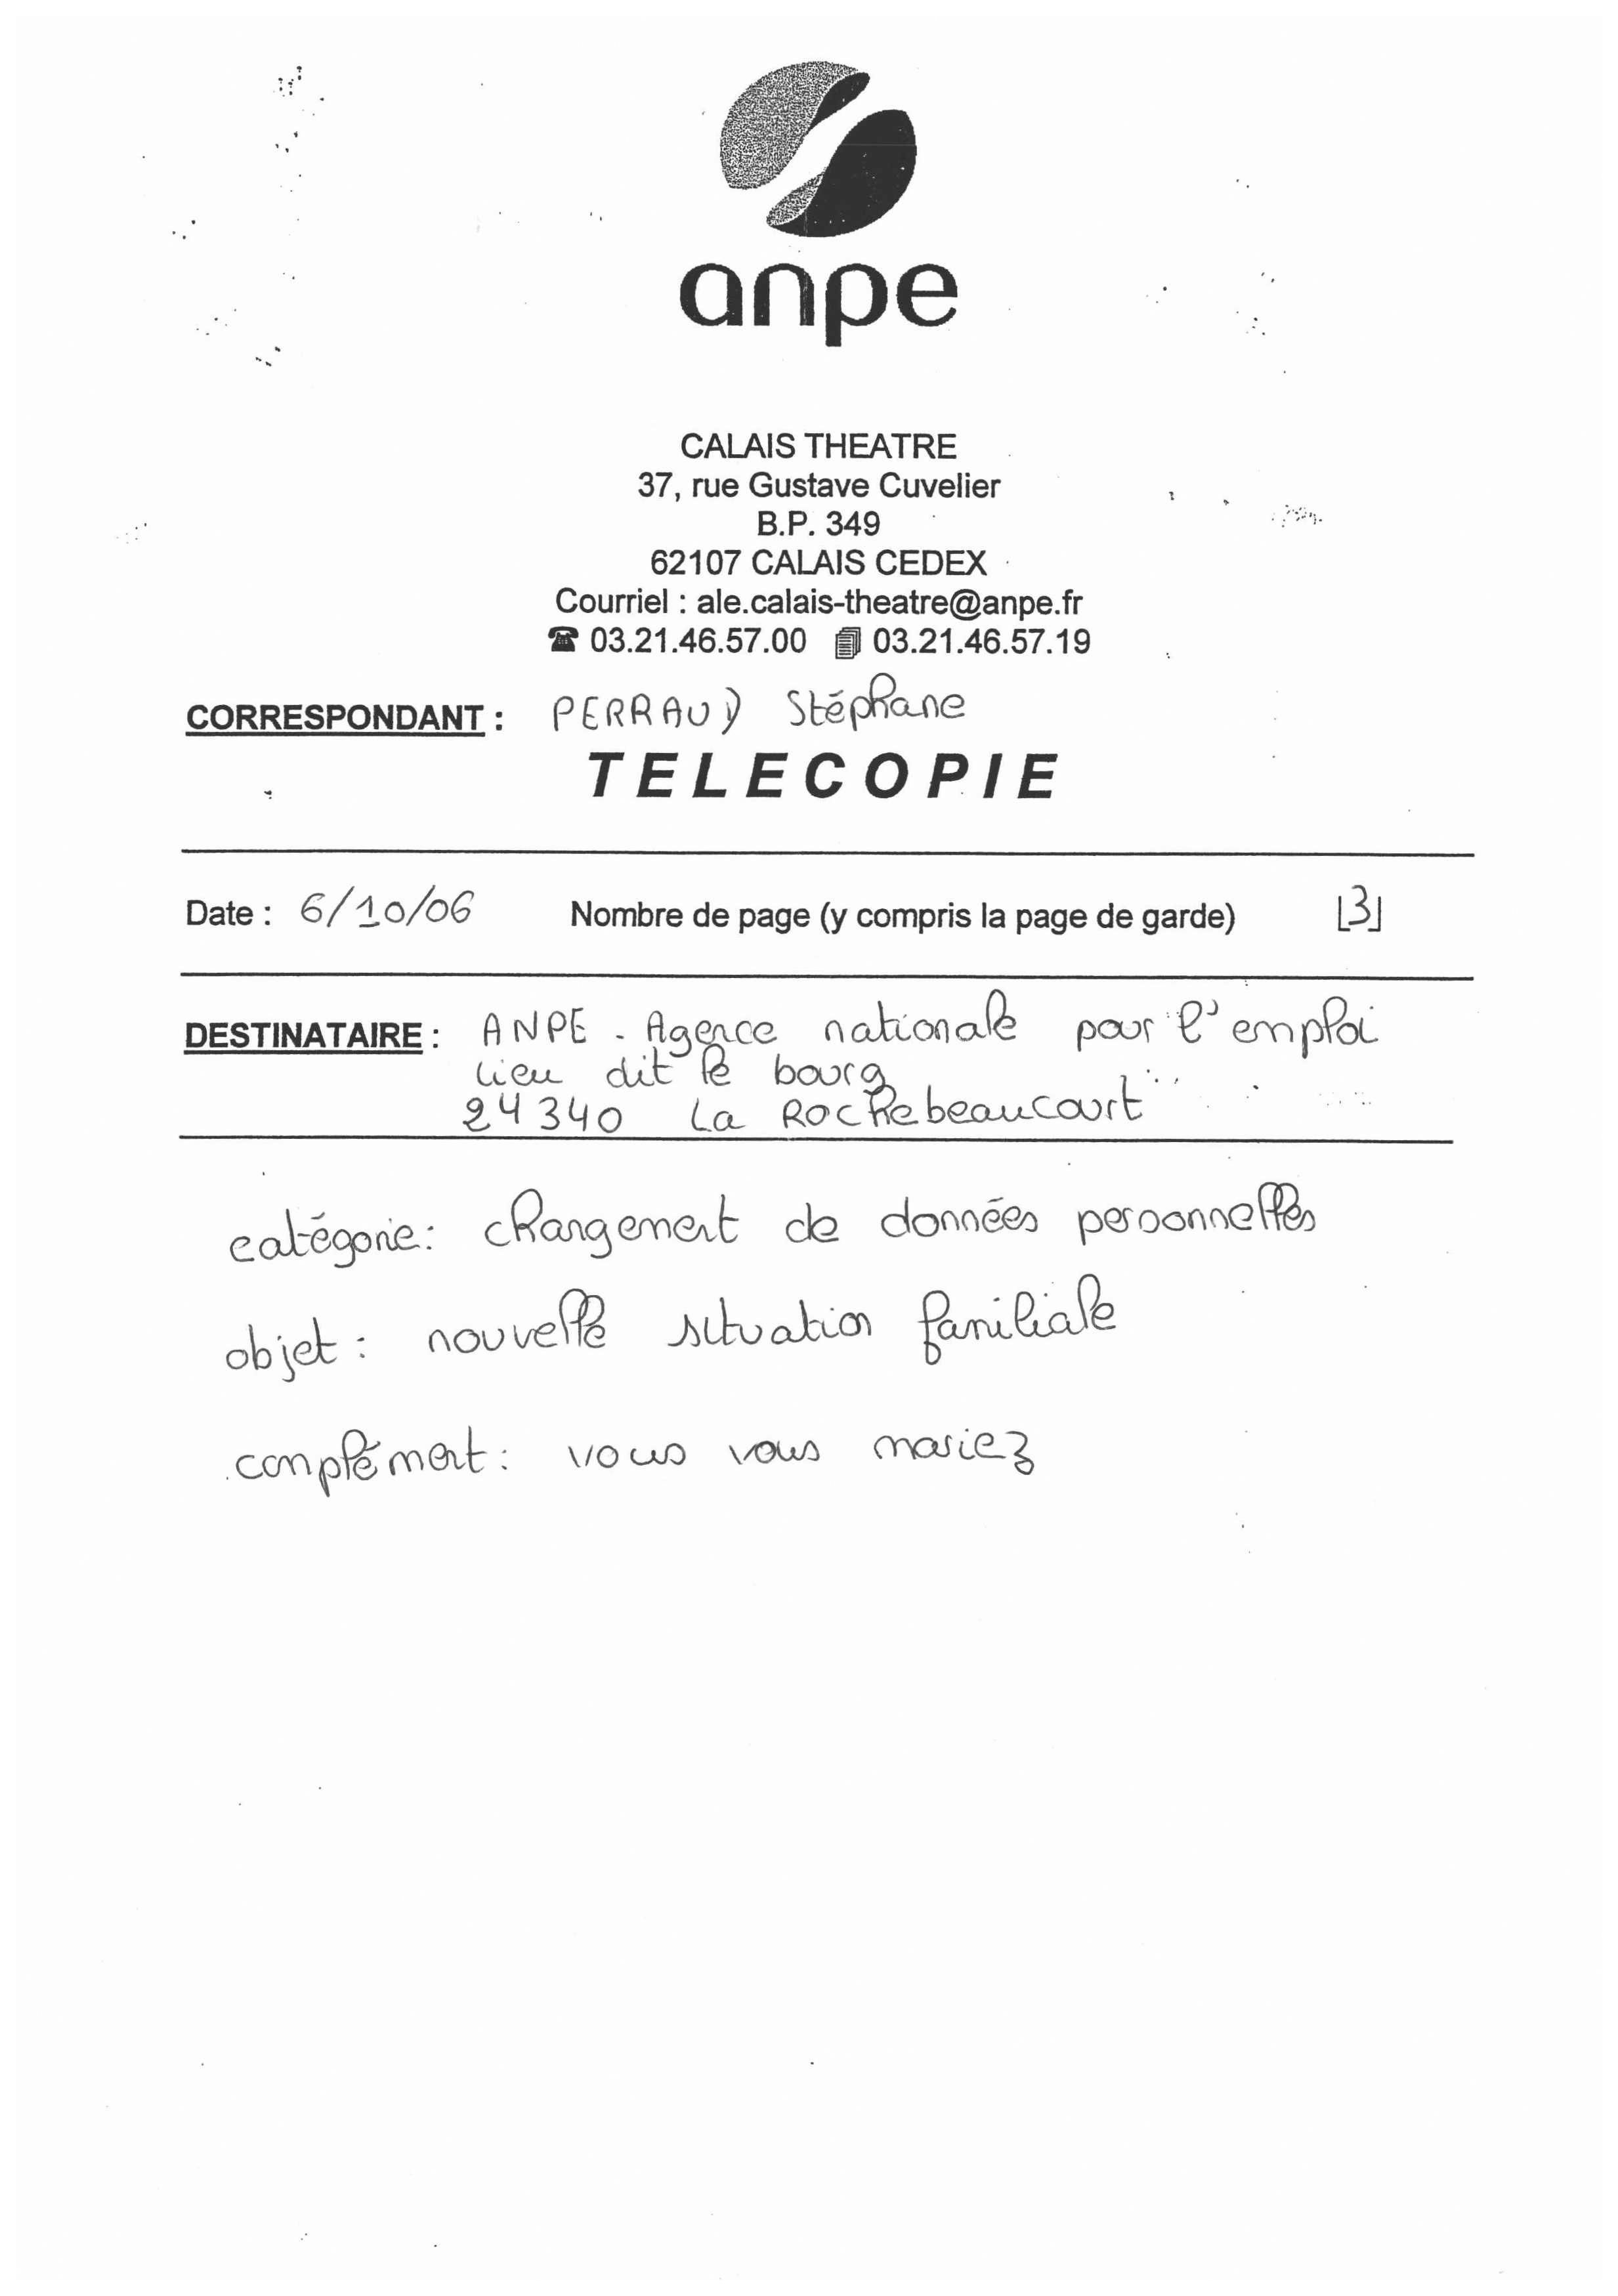 anpe
CALAIS THEATRE
37, rue Gustave Cuvelier
B.P. 349
62107 CALAIS CEDEX
Courriel : ale.calais-theatre@anpe.fr
☎ 03.21.46.57.00 03.21.46.57.19
CORRESPONDANT : PERRAUD Stéphane
TELECOPIE
Date : 6/10/06 Nombre de page (y compris la page de garde) |3|
DESTINATAIRE : ANPE - Agence nationale pour l'emploi
Lieu dit le bourg
24340 La Rochebeaucourt
catégorie : changement de données personnelles
objet : nouvelle situation familiale
complément : vous vous mariez